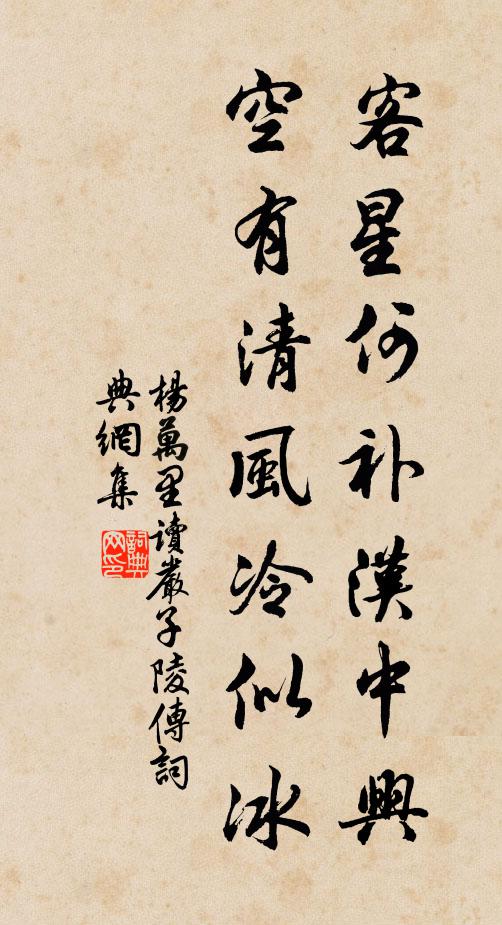 客星何补漢中興
空有清風冷似冰
楊萬里讀嚴子陵傳詞
典網集
詞典
网印